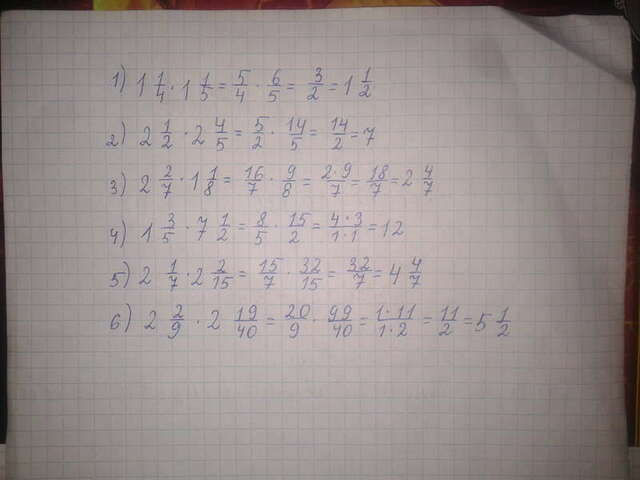 1) 1 1/4 · 1 1/5 = 5/4 · 6/5 = 3/2 = 1 1/2
2) 2 1/2 · 2 4/5 = 5/2 · 14/5 = 14/2 = 7
3) 2 2/7 · 1 1/8 = 16/7 · 9/8 = 2·9/7 = 18/7 = 2 4/7
4) 1 3/5 · 7 1/2 = 8/5 · 15/2 = 4·3/1·1 = 12
5) 2 1/7 · 2 2/15 = 15/7 · 32/15 = 32/7 = 4 4/7
6) 2 2/9 · 2 19/40 = 20/9 · 99/40 = 1·11/1·2 = 11/2 = 5 1/2